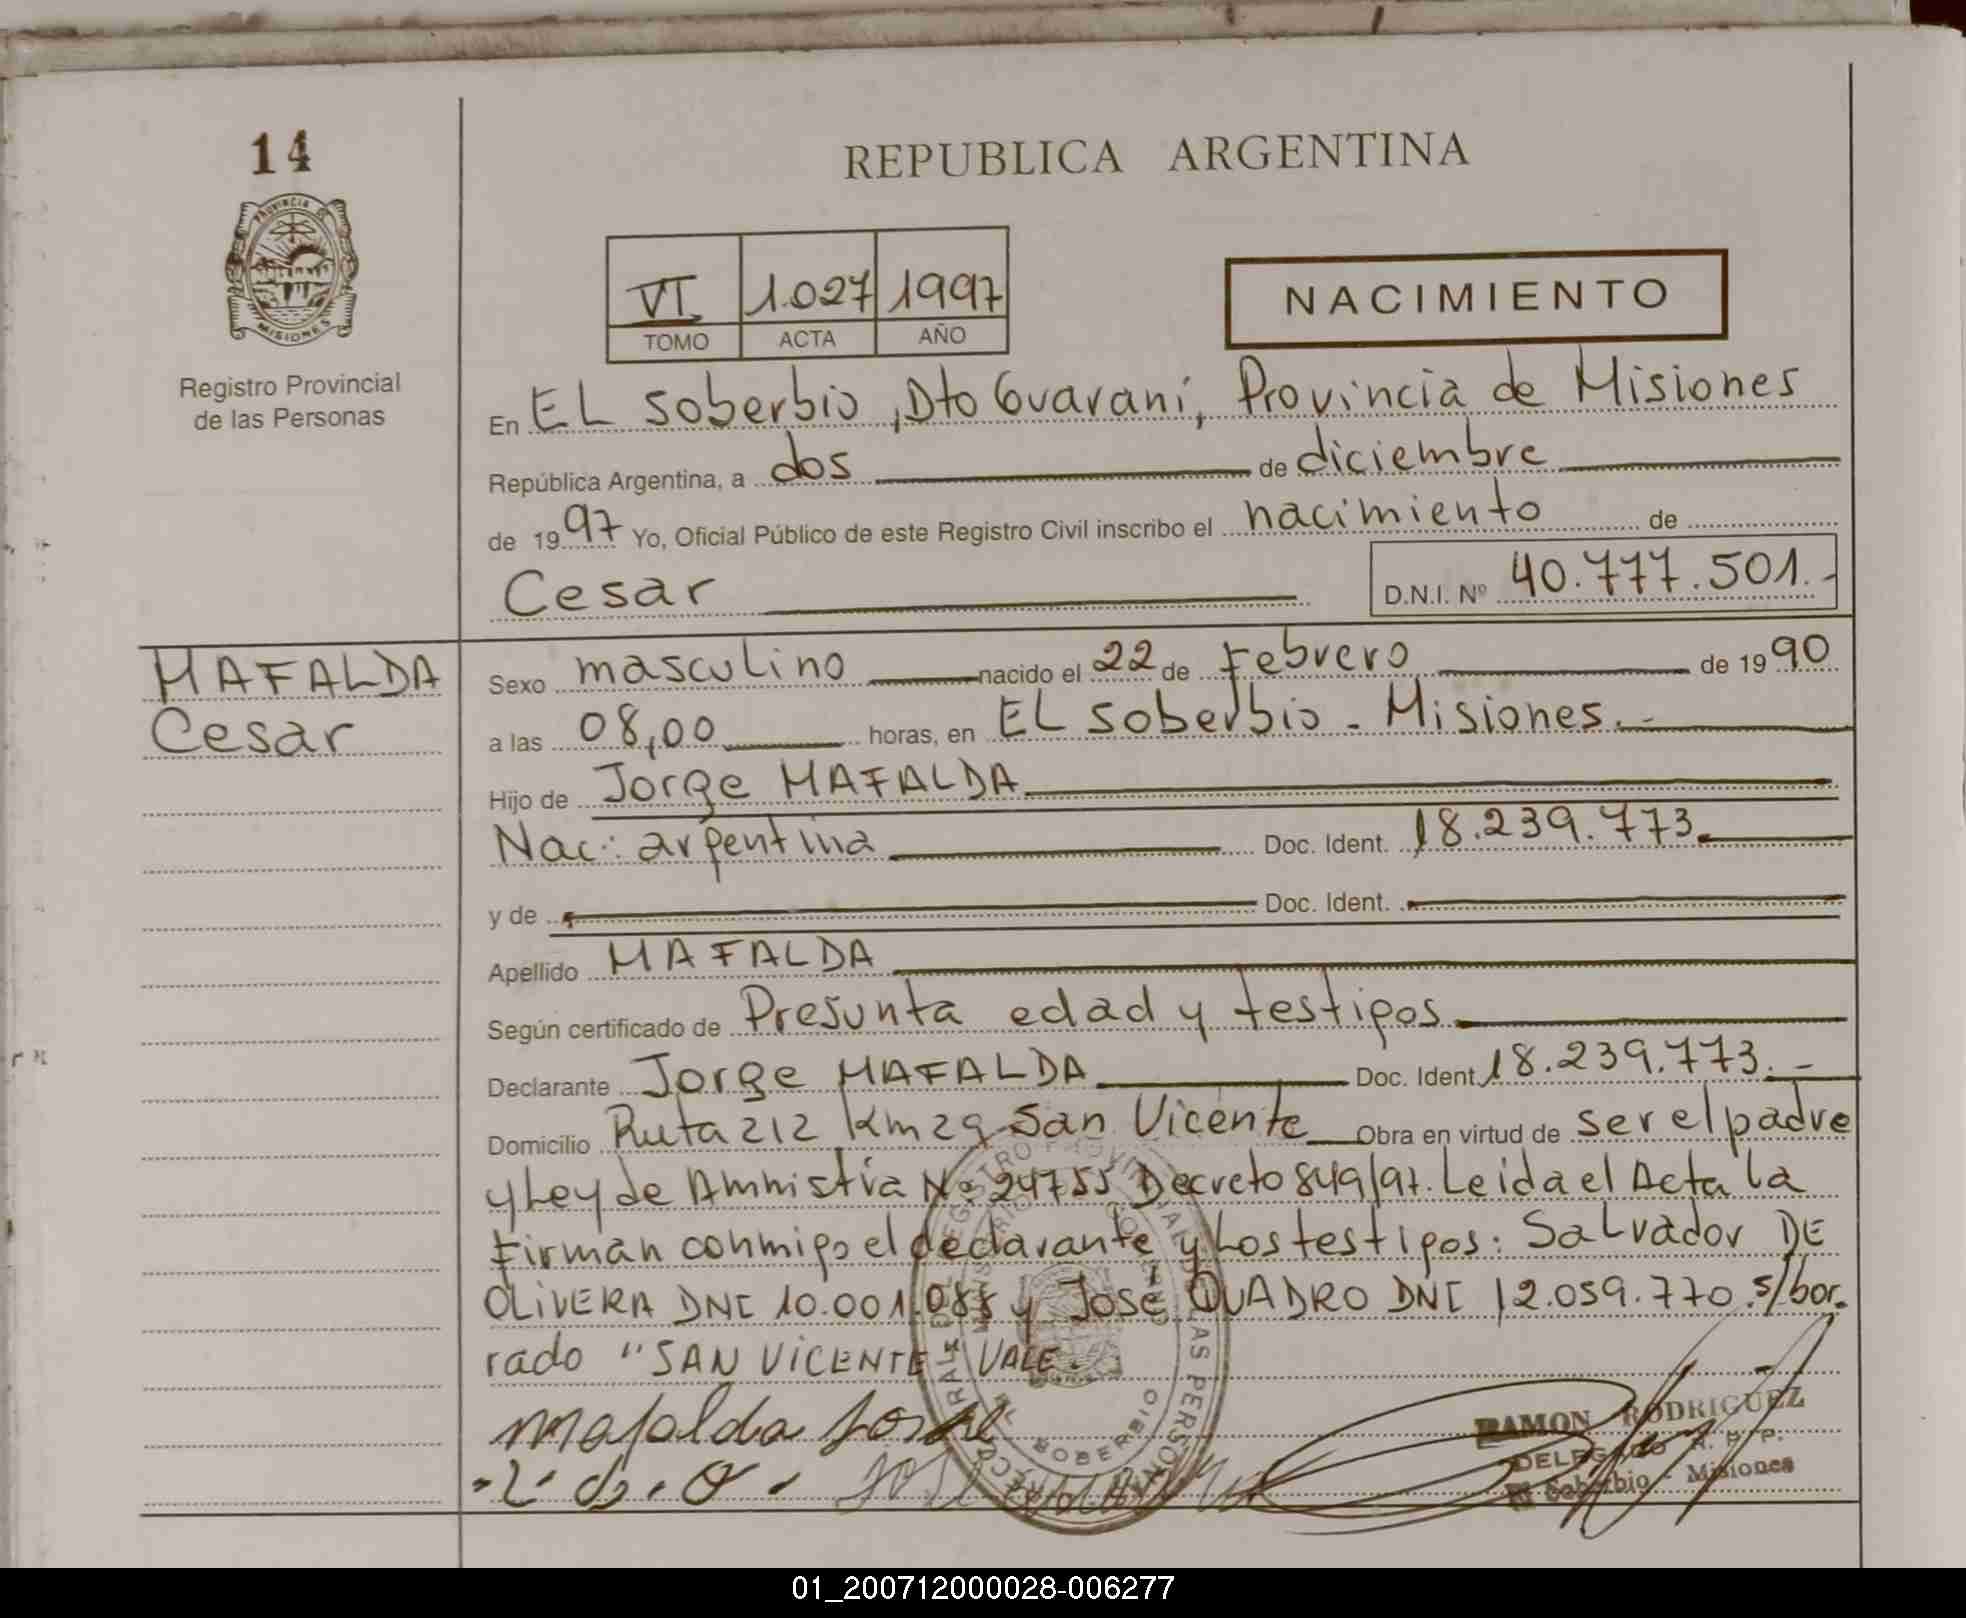 14
PROVINCIA DE
MISIONES
Registro Provincial
de las Personas
REPUBLICA ARGENTINA
VI 1.027 1997
TOMO ACTA AÑO
NACIMIENTO
En EL Soberbio, Dto Guaraní, Provincia de Misiones
República Argentina, a dos de diciembre
de 1997 Yo, Oficial Público de este Registro Civil inscribo el nacimiento de
Cesar D.N.I. Nº 40.777.501.-
MAFALDA
Cesar
Sexo masculino nacido el 22 de Febrero de 1990
a las 08,00 horas, en EL Soberbio - Misiones.-
Hijo de Jorge MAFALDA
Nac: argentina Doc. Ident. 18.239.773.
y de Doc. Ident.
Apellido MAFALDA
Según certificado de Presunta edad y testigos
Declarante Jorge MAFALDA Doc. Ident. 18.239.773.-
Domicilio Ruta 212 Km 29 San Vicente Obra en virtud de ser el padre
y Ley de Amnistia Nº 24755 Decreto 849/97. Leida el Acta la
Firman conmigo el declarante y Los testigos: Salvador DE
OLIVERA DNI 10.001.088 y José QUADRO DNI 12.059.770. s/bor.
rado "SAN VICENTE VALE.
Mafalda Jorge
RAMON RODRIGUEZ
DELEGADO R. P. P.
El Soberbio - Misiones
01_200712000028-006277